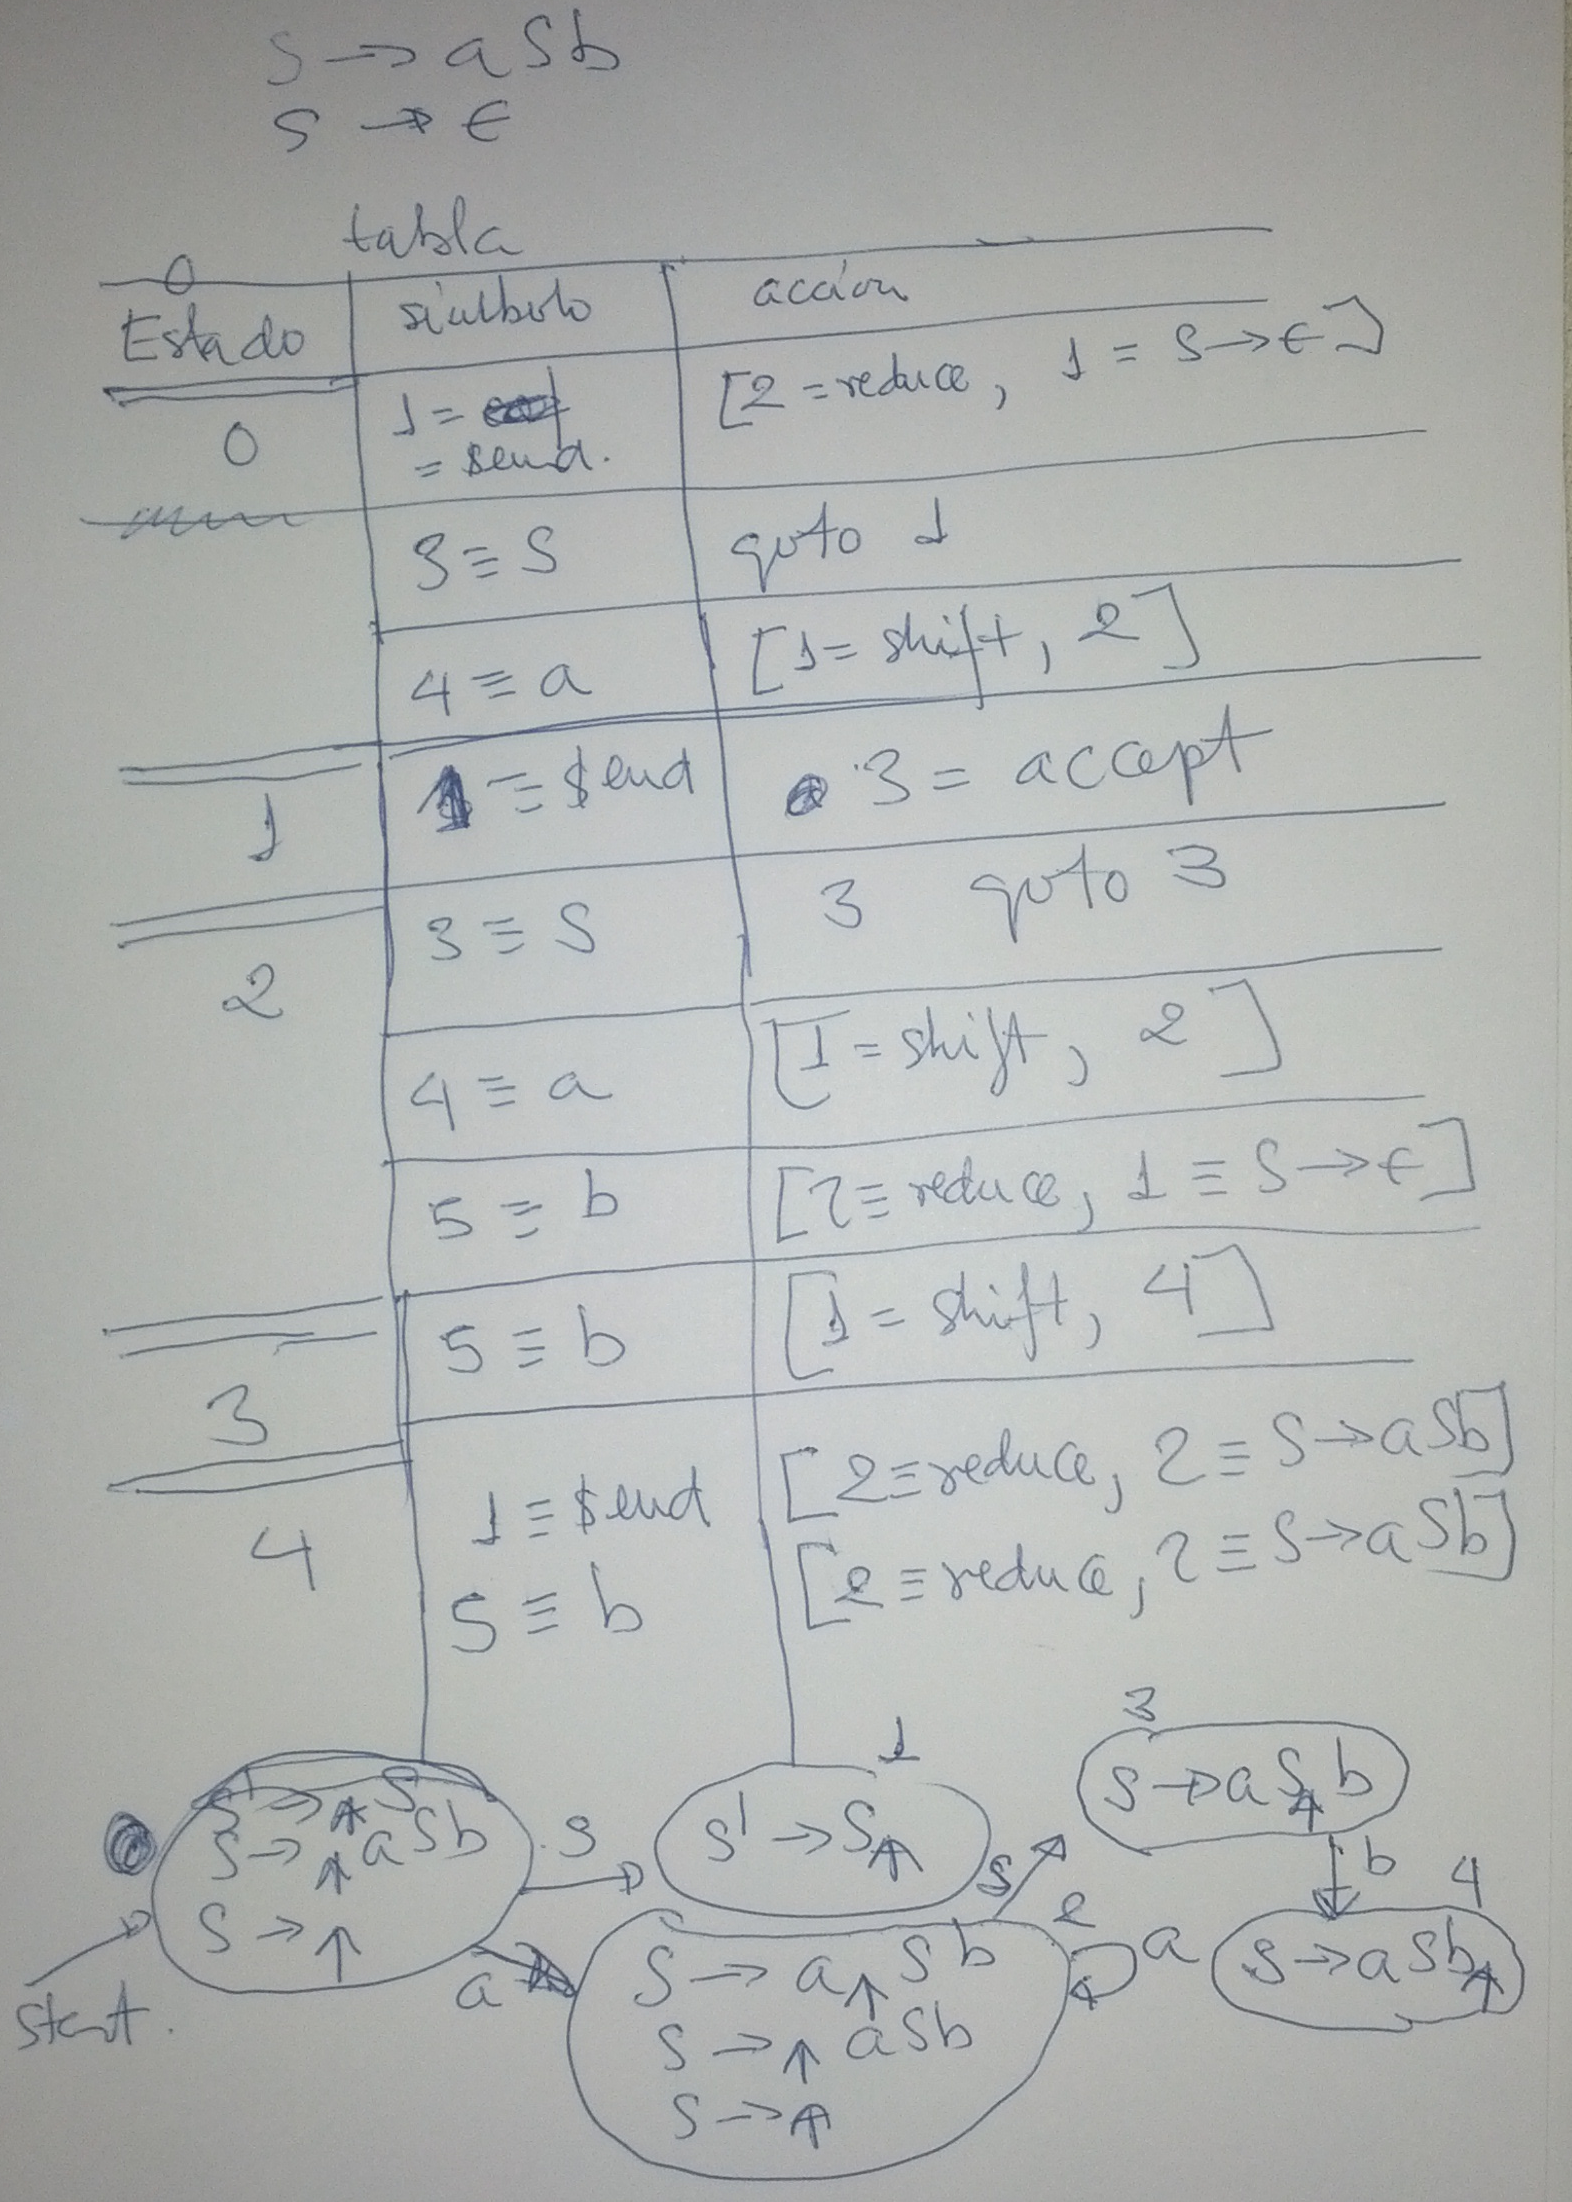 S → aSb
S → ϵ
tabla
Estado símbolo acción
0 1 = $end. [2 = reduce, 1 = S → ϵ]
3 ≡ S goto 1
4 ≡ a [1 = shift, 2]
1 1 ≡ $end 3 = accept
2 3 ≡ S 3 goto 3
4 ≡ a [1 = shift, 2]
5 ≡ b [2 ≡ reduce, 1 ≡ S → ϵ]
3 5 ≡ b [1 = shift, 4]
4 1 ≡ $end [2 ≡ reduce, 2 ≡ S → aSb]
5 ≡ b [2 ≡ reduce, 2 ≡ S → aSb]
start.
S' → ↑ S
S → ↑ aSb
S → ↑
S
a
1
S' → S↑
S
2
S → a↑Sb
S → ↑ aSb
S → ↑
a
3
S → aS↑b
b
4
S → aSb↑